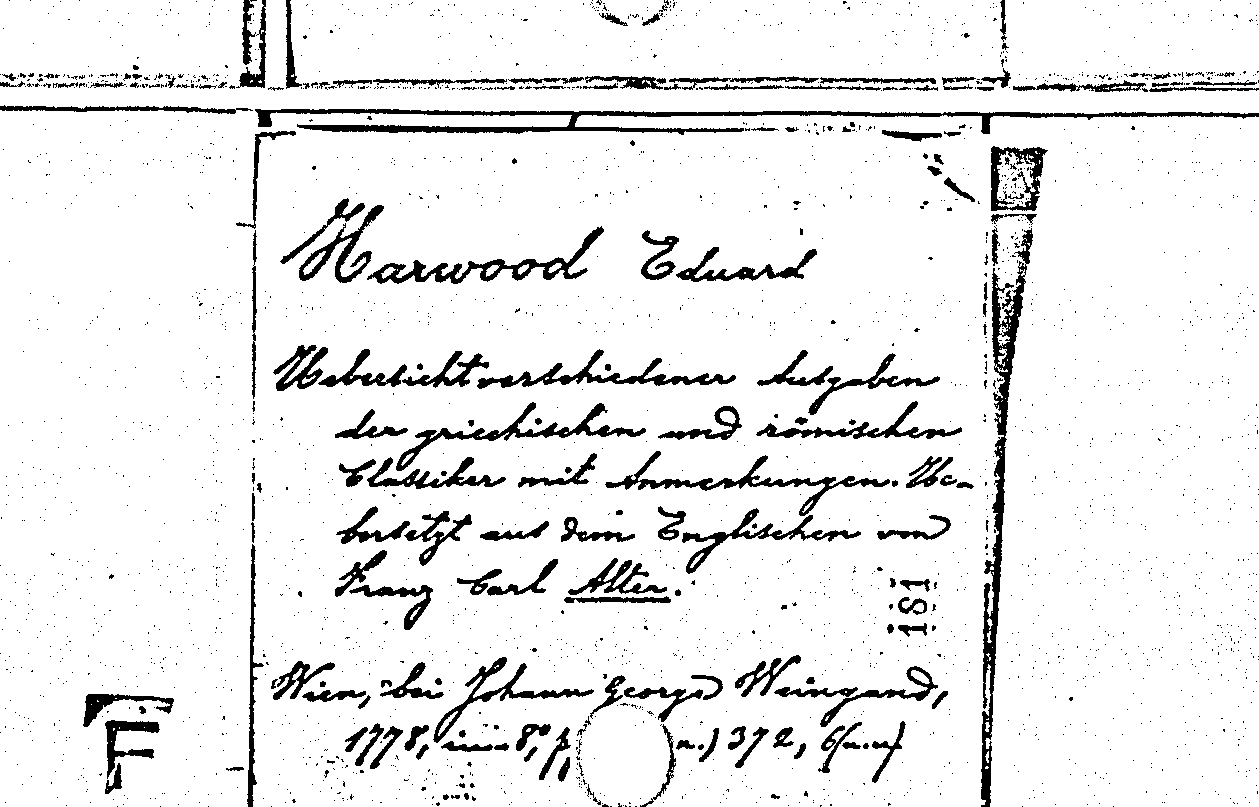 Harwood Eduard
Uebersicht verschiedener Ausgaben
der griechischen und römischen
Classiker mit Anmerkungen. Ue-
bersetzt aus dem Englischen von
Franz Carl Alter.
181
Wien, bei Johann Georg Weingand,
1778, in 8°, p n.) 372, 6(n.n)
F